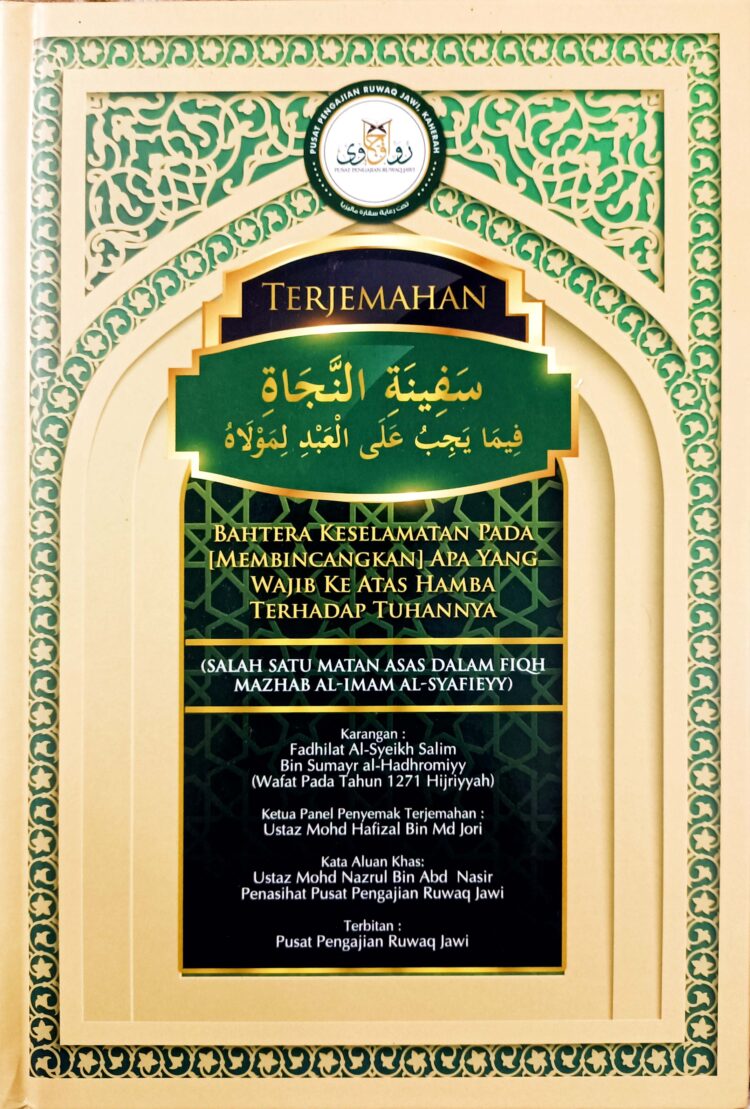 PUSAT PENGAJIAN RUWAQ JAWI, KAHERAH
رواق جاوي
PUSAT PENGAJIAN RUWAQ JAWI
تحت رعاية سفارة ماليزيا
TERJEMAHAN
سَفِينَةِ النَّجَاةِ
فِيمَا يَجِبُ عَلَى الْعَبْدِ لِمَوْلَاهُ
BAHTERA KESELAMATAN PADA
[MEMBINCANGKAN] APA YANG
WAJIB KE ATAS HAMBA
TERHADAP TUHANNYA
(SALAH SATU MATAN ASAS DALAM FIQH
MAZHAB AL-IMAM AL-SYAFIEYY)
Karangan :
Fadhilat Al-Syeikh Salim
Bin Sumayr al-Hadhromiyy
(Wafat Pada Tahun 1271 Hijriyyah)
Ketua Panel Penyemak Terjemahan :
Ustaz Mohd Hafizal Bin Md Jori
Kata Aluan Khas:
Ustaz Mohd Nazrul Bin Abd Nasir
Penasihat Pusat Pengajian Ruwaq Jawi
Terbitan :
Pusat Pengajian Ruwaq Jawi